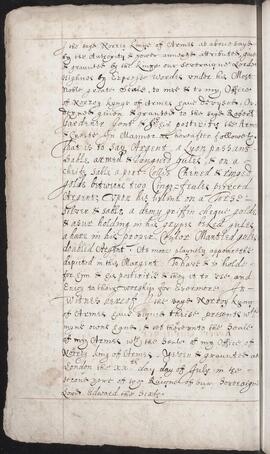 The sayd Norroy King of Armes as above sayd
by the Authoritie & power annexed attributed given
& graunted by the Kings our Soveraigne Lords
highnes by Expresse words under his Most
noble greate Seale, to me & to my Office
of Norroy Kynge of Armes have
given & graunted to the sayd Robert
& to his posteritie the Armes
& Creste in Manner as hereafter followeth
That is to Say Argent, a Lyon passant
Sable, armed & Langued gules, on a
chief sable a port Collys Chened &
golde betwixt two
Argent: Upon his helme on a Torse
Silver & sable, a demy griffin golde
holding in his gules
Mantled gules
doubled Argent: As more playnely appereth
depicted in this Margent. To have & to holde
for him & his posteritie & they it to use and
Enioy to their worship for Evermore In
Witnes hereof I the sayd Norroy King
of Armes have signed these presents with
myne owne hand, & set thereunto the Seale
of my Armes with the Seale of my Office of
Norroy King of Armes. Yeven & graunted at
London the xxth day of July in the
yere of the Reigne of our Soveraigne
Lord Edward the Sixte